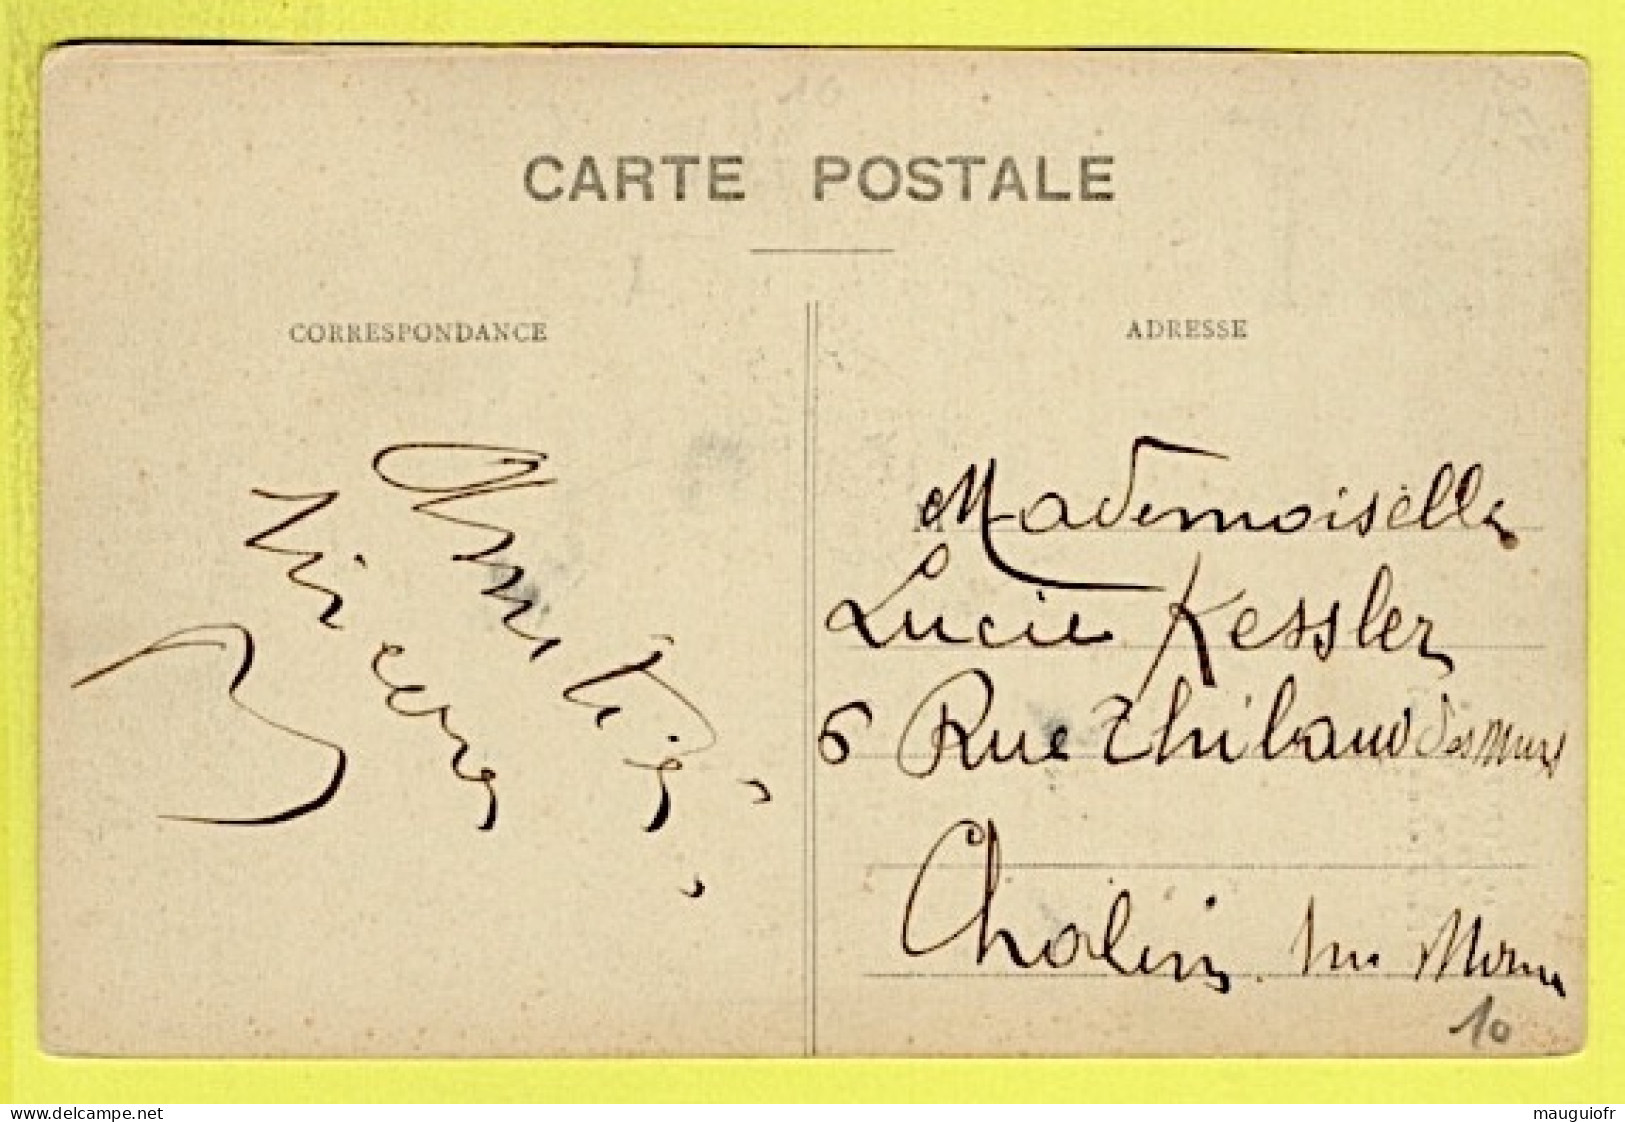 10
CARTE POSTALE
CORRESPONDANCE
ADRESSE
Mademoiselle
Lucie Kessler
6 Rue Thibaud des Murs
Chalin sur Marne
10
www.delcampe.net
mauguiofr